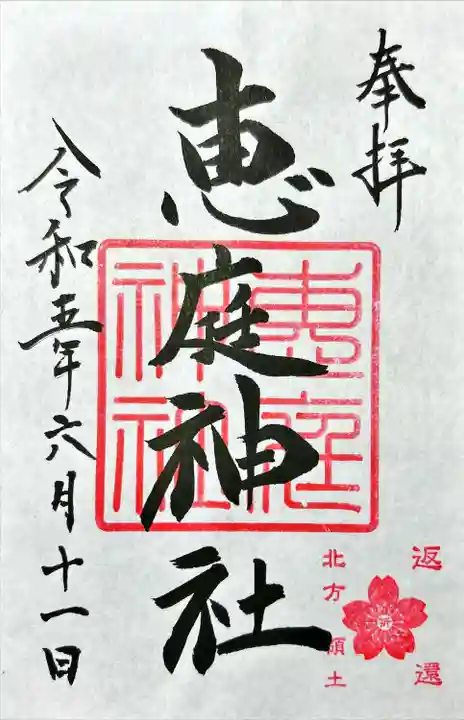 奉拝
恵庭神社
恵庭
神社
令和五年六月十一日
返還
祈
北方領土